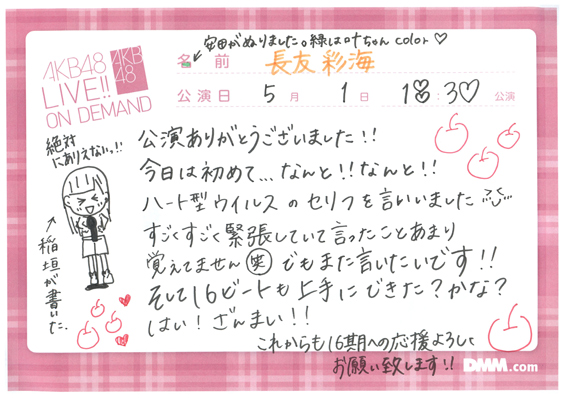 安田がぬりました。緑は叶ちゃん color♡
AKB48
LIVE!!
ON DEMAND
AKB
48
名前 長友彩海
公演日 5月 1日 18:30 公演
絶対
にありえないっ!!
←稲垣が書いた。
公演ありがとうございました!!
今日は初めて…なんと!!なんと!!
ハート型ウイルスのセリフを言いいました
すごくすごく緊張していて言ったことあまり
覚えてません(笑)でもまた言いたいです!!
そして16ビートも上手にできた?かな?
はい!ざんまい!!
これからも16期への応援よろしく
お願い致します!!
DMM.com